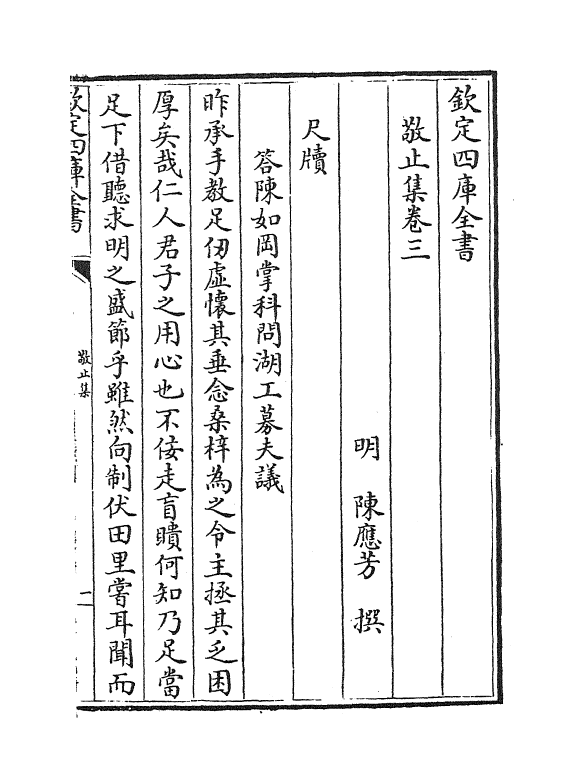 欽定四庫全書
敬止集卷三
明 陳應芳 撰
尺牘
答陳如岡掌科問湖工募夫議
昨承手教足仞虛懷其垂念桑梓為之令主拯其乏困
厚矣哉仁人君子之用心也不佞走盲瞶何知乃足當
足下借聽求明之盛節乎雖然向制伏田里嘗耳聞而
欽定四庫全書
敬止集